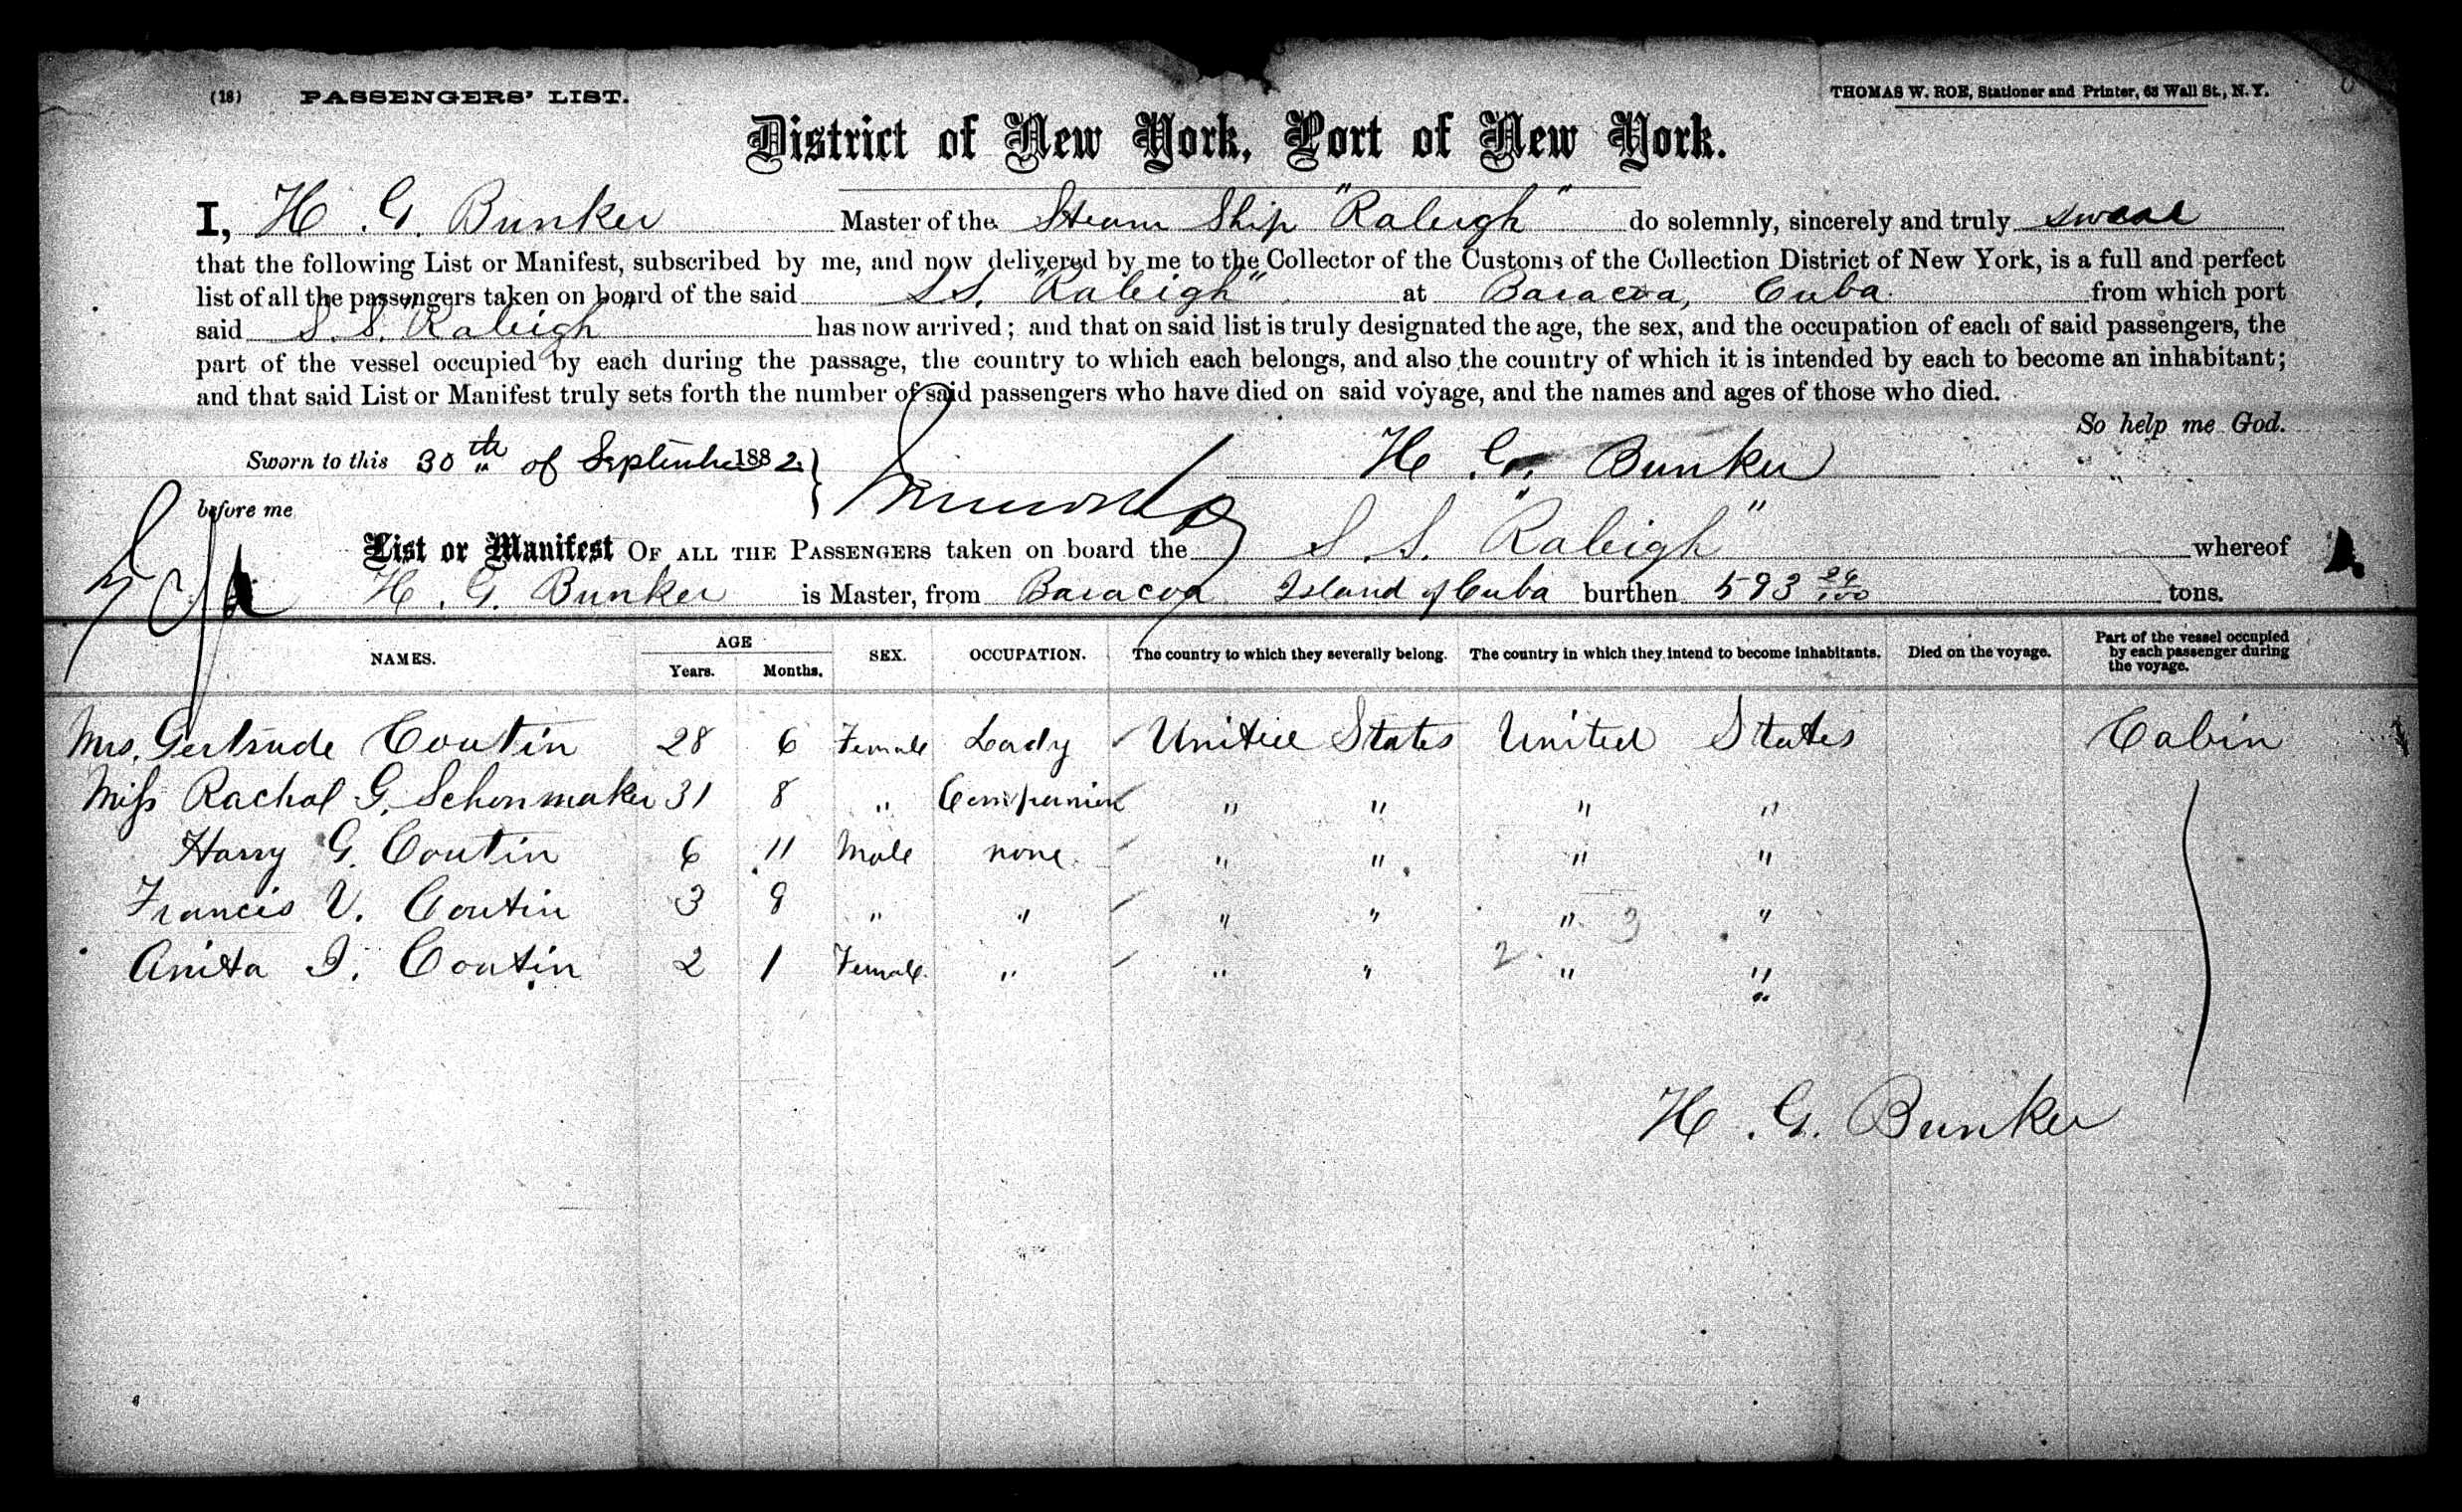 (18) PASSENGERS' LIST. THOMAS W. ROE, Stationer and Printer, 63 Wall St., N.Y.
District of New York, Port of New York.
I, H. G. Bunker Master of the Steam Ship "Raleigh" do solemnly, sincerely and truly swear
that the following List or Manifest, subscribed by me, and now delivered by me to the Collector of the Customs of the Collection District of New York, is a full and perfect
list of all the passengers taken on board of the said S.S. "Raleigh" at Baracoa, Cuba from which port
said S.S. "Raleigh" has now arrived; and that on said list is truly designated the age, the sex, and the occupation of each of said passengers, the
part of the vessel occupied by each during the passage, the country to which each belongs, and also the country of which it is intended by each to become an inhabitant;
and that said List or Manifest truly sets forth the number of said passengers who have died on said voyage, and the names and ages of those who died.
So help me God.
Sworn to this 30th of September 1882 H. G. Bunker
before me
List or Manifest OF ALL THE PASSENGERS taken on board the S.S. "Raleigh" whereof
H. G. Bunker is Master, from Baracoa Island of Cuba burthen 593 26/100 tons.
NAMES. AGE Years. Months. SEX. OCCUPATION. The country to which they severally belong. The country in which they intend to become inhabitants. Died on the voyage. Part of the vessel occupied by each passenger during the voyage.
Mrs. Gertrude Coutin 28 6 Female Lady United States United States Cabin
Miss Rachal G. Schonmaker 31 8 " Companion " " " "
Harry G. Coutin 6 11 Male none " " " "
Francis V. Coutin 3 9 " " " " " 3 "
Anita I. Coutin 2 1 Female " " " 2 " "
H. G. Bunker